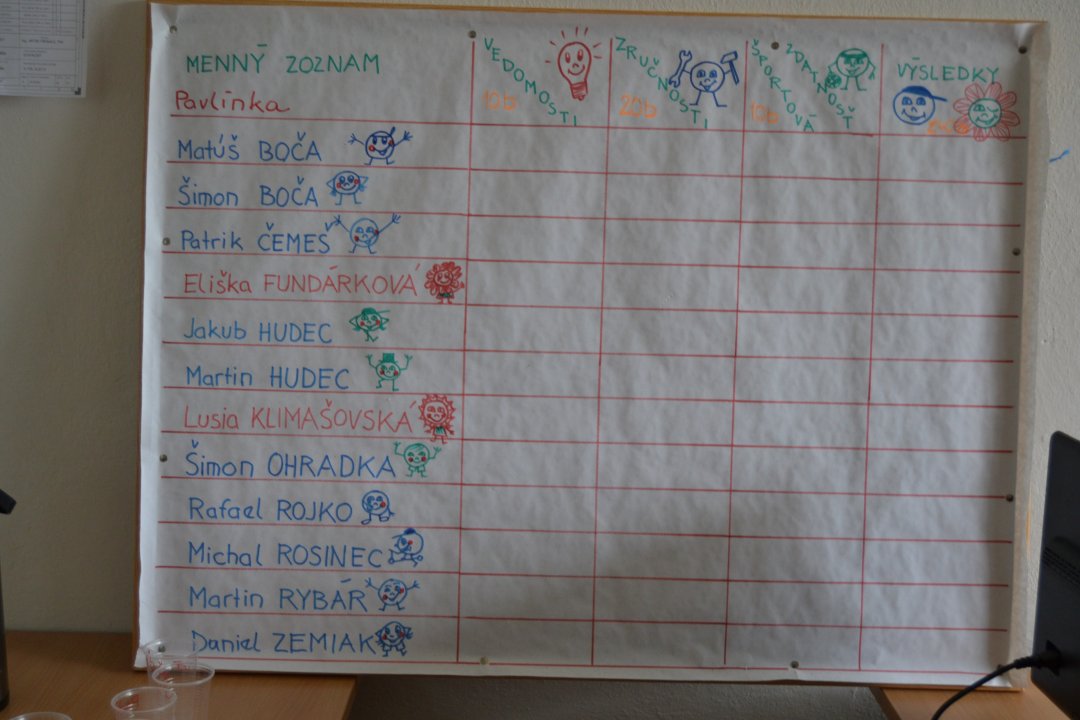 MENNÝ ZOZNAM
VEDOMOSTI
10b
ZRUČNOSTI
20b
ŠPORTOVÁ ZDATNOSŤ
10b
VÝSLEDKY
Pavlínka
Matúš BOČA
Šimon BOČA
Patrik ČEMEŠ
Eliška FUNDÁRKOVÁ
Jakub HUDEC
Martin HUDEC
Lusia KLIMAŠOVSKÁ
Šimon OHRADKA
Rafael ROJKO
Michal ROSINEC
Martin RYBÁR
Daniel ZEMIAK